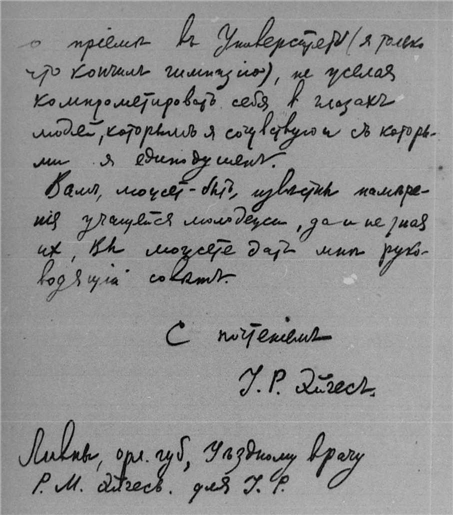 о пріемѣ въ Университетъ (я только
что кончилъ гимназію), не желая
компрометировать себя в глазахъ
людей, которымъ я сочувствую и съ которы-
ми я единодушенъ.
Вамъ, можетъ-быть, извѣстны намѣре-
нія учащейся молодежи, да и не зная
их, Вы можете дать мнѣ руко-
водящій совѣтъ.
С почтеніемъ
І. Р. Эйгесъ.
Ливны, орл. губ., Уѣздному врачу
Р. М. Эйгесъ. для І. Р.